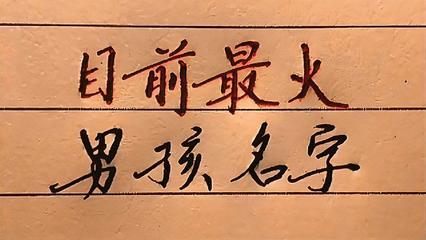 目前最火
男孩名字